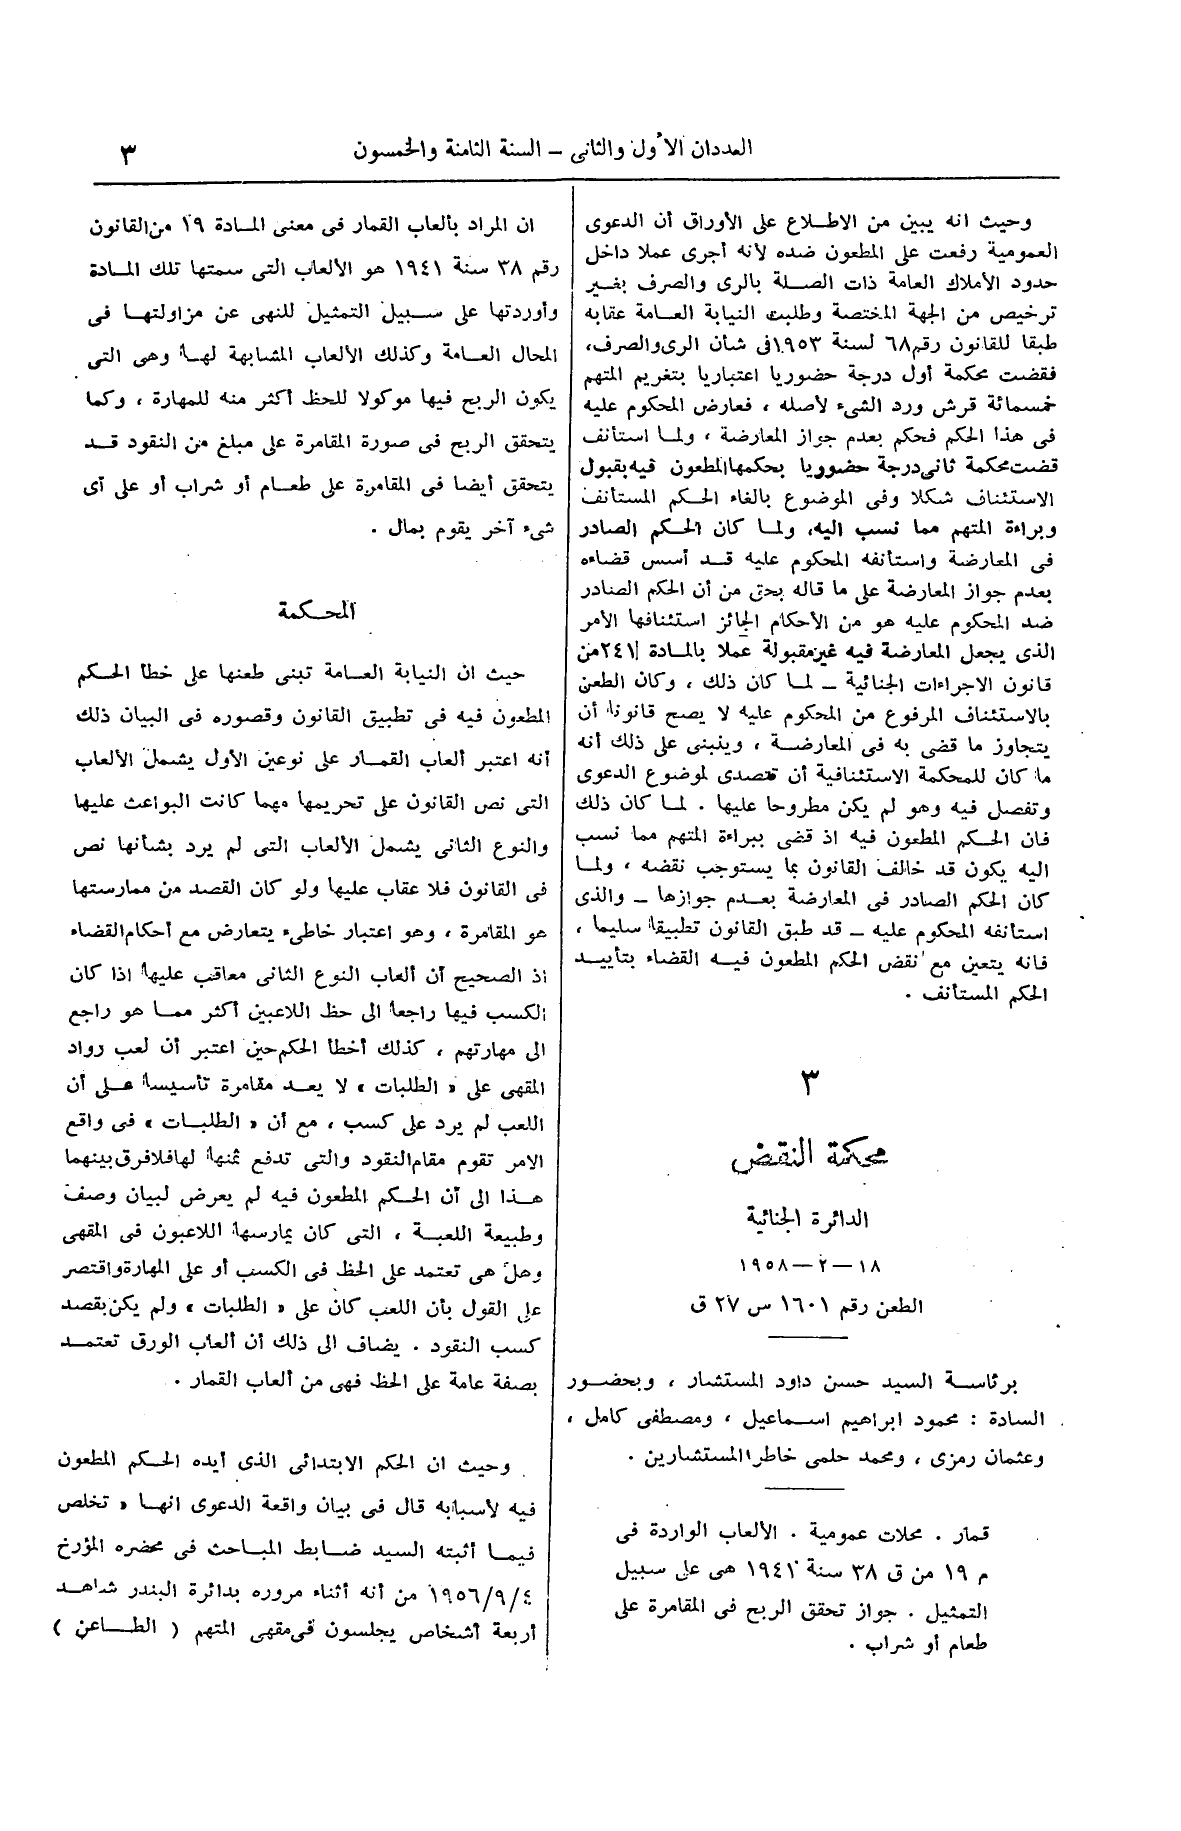 العددان الأول والثانى – السنة الثامنة والخمسون
٣
وحيث انه يبين من الاطلاع على الأوراق أن الدعوى
العمومية رفعت على المطعون ضده لأنه أجرى عملا داخل
حدود الأملاك العامة ذات الصلة بالرى والصرف بغير
ترخيص من الجهة المختصة وطلبت النيابة العامة عقابه
طبقا للقانون رقم ٦٨ لسنة ١٩٥٣ فى شأن الرى والصرف،
فقضت محكمة أول درجة حضوريا اعتباريا بتغريم المتهم
خمسمائة قرش ورد الشىء لأصله ، فعارض المحكوم عليه
فى هذا الحكم فحكم بعدم جواز المعارضة ، ولما استأنف
قضت محكمة ثانى درجة حضوريا بحكمها المطعون فيه بقبول
الاستئناف شكلا وفى الموضوع بالغاء الحكم المستأنف
وبراءة المتهم مما نسب اليه، ولما كان الحكم الصادر
فى المعارضة واستأنفه المحكوم عليه قد أسس قضاءه
بعدم جواز المعارضة على ما قاله بحق من أن الحكم الصادر
ضد المحكوم عليه هو من الأحكام الجائز استئنافها الأمر
الذى يجعل المعارضة فيه غير مقبولة عملا بالمادة ٢٤١ من
قانون الاجراءات الجنائية – لما كان ذلك ، وكان الطعن
بالاستئناف المرفوع من المحكوم عليه لا يصح قانونا أن
يتجاوز ما قضى به فى المعارضة ، وينبنى على ذلك أنه
ما كان للمحكمة الاستئنافية أن تتصدى لموضوع الدعوى
وتفصل فيه وهو لم يكن مطروحا عليها . لما كان ذلك
فان الحكم المطعون فيه اذ قضى ببراءة المتهم مما نسب
اليه يكون قد خالف القانون بما يستوجب نقضه ، ولما
كان الحكم الصادر فى المعارضة بعدم جوازها – والذى
استأنفه المحكوم عليه – قد طبق القانون تطبيقا سليما ،
فانه يتعين مع نقض الحكم المطعون فيه القضاء بتأييد
الحكم المستأنف .
٣
محكمة النقض
الدائرة الجنائية
١٨ – ٢ – ١٩٥٨
الطعن رقم ١٦٠١ س ٢٧ ق
برئاسة السيد حسن داود المستشار ، وبحضور
السادة : محمود ابراهيم اسماعيل ، ومصطفى كامل ،
وعثمان رمزى ، ومحمد حلمى خاطر المستشارين .
قمار . محلات عمومية . الألعاب الواردة فى
م ١٩ من ق ٣٨ سنة ١٩٤١ هى على سبيل
التمثيل . جواز تحقق الربح فى المقامرة على
طعام أو شراب .
ان المراد بألعاب القمار فى معنى المادة ١٩ من القانون
رقم ٣٨ سنة ١٩٤١ هو الألعاب التى سمتها تلك المادة
وأوردتها على سبيل التمثيل للنهى عن مزاولتها فى
المحال العامة وكذلك الألعاب المشابهة لها وهى التى
يكون الربح فيها موكولا للحظ أكثر منه للمهارة ، وكما
يتحقق الربح فى صورة المقامرة على مبلغ من النقود قد
يتحقق أيضا فى المقامرة على طعام أو شراب أو على أى
شىء آخر يقوم بمال .
المحكمة
حيث ان النيابة العامة تبنى طعنها على خطأ الحكم
المطعون فيه فى تطبيق القانون وقصوره فى البيان ذلك
أنه اعتبر ألعاب القمار على نوعين الأول يشمل الألعاب
التى نص القانون على تحريمها مهما كانت البواعث عليها
والنوع الثانى يشمل الألعاب التى لم يرد بشأنها نص
فى القانون فلا عقاب عليها ولو كان القصد من ممارستها
هو المقامرة ، وهو اعتبار خاطىء يتعارض مع أحكام القضاء
اذ الصحيح أن ألعاب النوع الثانى معاقب عليها اذا كان
الكسب فيها راجعا الى حظ اللاعبين أكثر مما هو راجع
الى مهارتهم ، كذلك أخطأ الحكم حين اعتبر أن لعب رواد
المقهى على « الطلبات » لا يعد مقامرة تأسيسا على أن
اللعب لم يرد على كسب ، مع أن « الطلبات » فى واقع
الامر تقوم مقام النقود والتى تدفع ثمنها لها فلا فرق بينهما
هذا الى أن الحكم المطعون فيه لم يعرض لبيان وصف
وطبيعة اللعبة ، التى كان يمارسها اللاعبون فى المقهى
وهل هى تعتمد على الحظ فى الكسب أو على المهارة واقتصر
على القول بأن اللعب كان على « الطلبات » ولم يكن بقصد
كسب النقود . يضاف الى ذلك أن ألعاب الورق تعتمد
بصفة عامة على الحظ فهى من ألعاب القمار .
وحيث ان الحكم الابتدائى الذى أيده الحكم المطعون
فيه لأسبابه قال فى بيان واقعة الدعوى انها « تخلص
فيما أثبته السيد ضابط المباحث فى محضره المؤرخ
١٩٥٦/٩/٤ من أنه أثناء مروره بدائرة البندر شاهد
أربعة أشخاص يجلسون فى مقهى المتهم ( الطاعن )